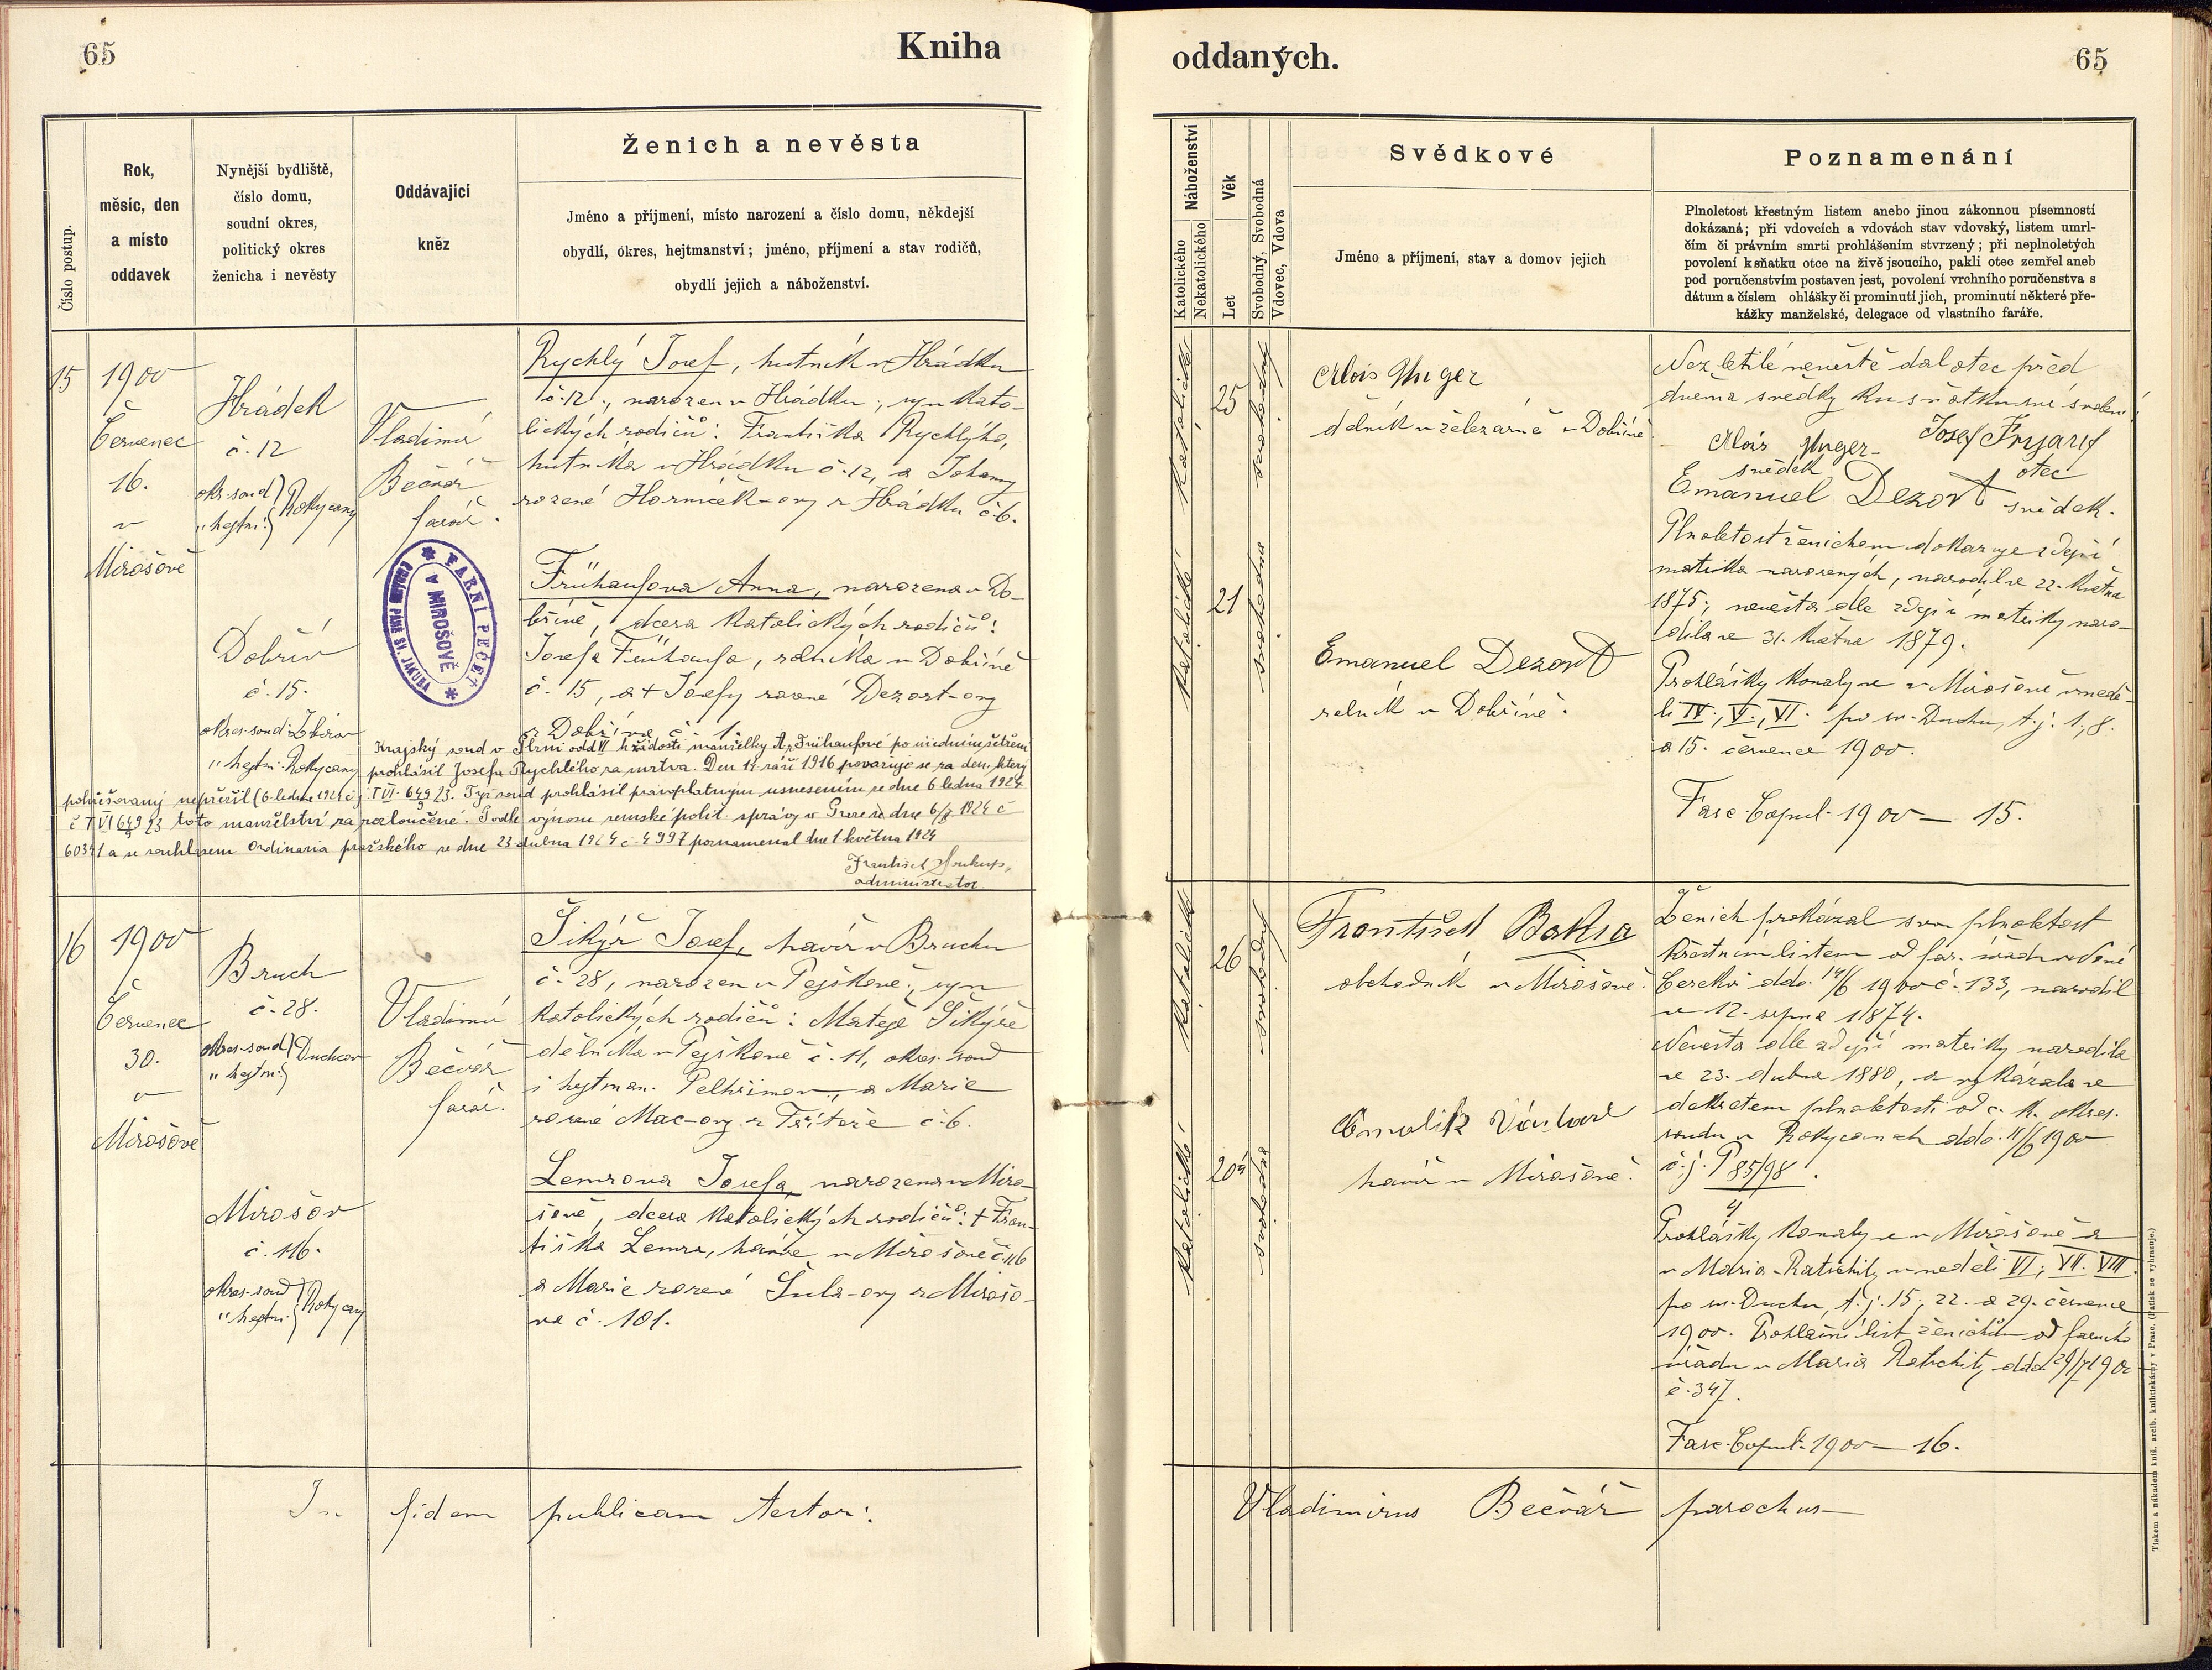 65
Kniha
oddaných.
65
Číslo postup.
Rok,
měsíc, den
a místo
oddavek
Nynější bydliště,
číslo domu,
soudní okres,
politický okres
ženicha i nevěsty
Oddávající
kněz
Ženich a nevěsta
Jméno a příjmení, místo narození a číslo domu, někdejší
obydlí, okres, hejtmanství; jméno, příjmení a stav rodičů,
obydlí jejich a náboženství.
Náboženství
Katolického
Nekatolického
Věk
Let
Svobodný, Svobodná
Vdovec, Vdova
Svědkové
Jméno a příjmení, stav a domov jejich
Poznamenání
Plnoletost křestným listem anebo jinou zákonnou písemností
dokázaná; při vdovcích a vdovách stav vdovský, listem umrl-
čím či právním smrti prohlášením stvrzený; při neplnoletých
povolení k sňatku otce na živě jsoucího, pakli otec zemřel aneb
pod poručenstvím postaven jest, povolení vrchního poručenstva s
dátum a číslem ohlášky či prominutí jich, prominutí některé pře-
kážky manželské, delegace od vlastního faráře.
15
1900
Červenec
16.
v
Mirošově
Hrádek
č. 12
okr. soud
" hejtm.
Rokycany
Vladimír
Bečvář
farář.
Rychlý Josef, hutník v Hrádku
č. 12., narozen v Hrádku, syn kato-
lických rodičů: Františka Rychlýho,
hutníka v Hrádku č. 12, a Johanny
rozené Horníček-ovy z Hrádku č. 6.
FARNÍ PEČEŤ
CHRÁMU PÁNĚ SV. JAKUBA
V MIROŠOVĚ
Dobřív
č. 15.
okres. soud: Zbirov
" hejtm. Rokycany
Frühaufova Anna, narozena v Do-
břívě, dcera katolických rodičů:
Josefa Frühaufa, rolníka v Dobřívě
č. 15, a + Josefy rozené Dezort-ovy
z Dobříva č. 1.
Krajský soud v Plzni odd VI k žádosti manželky A. Frühaufové po úředním šetření
prohlásil Josefa Rychlého za mrtva. Den 14. září 1916 považuje se za den, který
pohřešovaný nepřežil (6. ledna 1924 č j T VI 649/23. Týž soud prohlásil pravoplatným usnesením ze dne 6 ledna 1924
č T VI 649/23 toto manželství za rozloučené. Podle výnosu zemské polit. správy v Praze ze dne 6/3 1924 č
60341 a se souhlasem Ordinaria pražského ze dne 23 dubna 1924 č 4997 poznamenal dne 1 května 1924
František Soukup,
administrator.
katolické
25
svobodný
Alois Unger
dělník v železárně v Dobřívě.
katolické
21
svobodná
Emanuel Dezort
rolník v Dobřívě.
Nezletilé nevěstě dal otec před
dvěma svědky ku sňatku své svolení
Alois Unger
Josef
svědek
otec
Emanuel Dezort svědek.
Plnoletost ženichem dokazuje zdejší
matrika narozených, narodil se 22. května
1875; nevěsta dle zdejší matriky naro-
dila se 31. května 1879.
Prohlášky konaly se v Mirošově v nedě-
li IV., V., VI. po sv. Duchu, t. j. 1., 8.
a 15. července 1900.
Fasc. Copul. 1900 — 15.
16
1900
Červenec
30.
v
Mirošově
Bruch
č. 28.
okres. soud
" hejtm.
Duchcov
Vladimír
Bečvář
farář.
Šikýř Josef, havíř v Bruchu
č. 28, narozen v Pejškově, syn
katolických rodičů: Matěje Šikýře
dělníka v Pejškově č. 11, okres. soud
i hejtman. Pelhřimov, a Marie
rozené Mac-ovy z Těšitoře č. 6.
Mirošov
č. 116.
okres. soud
" hejtm.
Rokycany
Lemrova Josefa, narozena v Miro-
šově, dcera katolických rodičů: + Fran-
tiška Lemra, havíře v Mirošově č. 116
a Marie rozené Šula-ovy z Mirošo-
va č. 101.
katolické
26
svobodný
František Bokša
obchodník v Mirošově.
katolické
20
svobodná
Václav
havíř v Mirošově.
Ženich prokázal svou plnoletost
křestním listem od far. úřadu v Nové
Cerekvi ddo. 14/6 1900 č. 133, narodil
se 12. srpna 1874.
Nevěsta dle zdejší matriky narodila
se 23. dubna 1880, a vykázala se
dekretem plnoletosti od c. k. okres.
soudu v Rokycanech ddo. 11/6 1900
č. j. P 85/98
4
Prohlášky konaly se v Mirošově a
v Maria-Ratschitz v neděli VI., VII. VIII.
po sv. Duchu, t. j. 15., 22. a 29. července
1900. Prohlašní list ženichům od farního
úřadu v Maria Ratschitz ddo. 29/7 1900
č. 347.
Fasc. Copul. 1900 — 16.
In fidem publicam testor:
Vladimirus Bečvář parochus
Tiskem a nákladem kníž. arcib. knihtiskárny v Praze. (Patisk se vyhrazuje.)